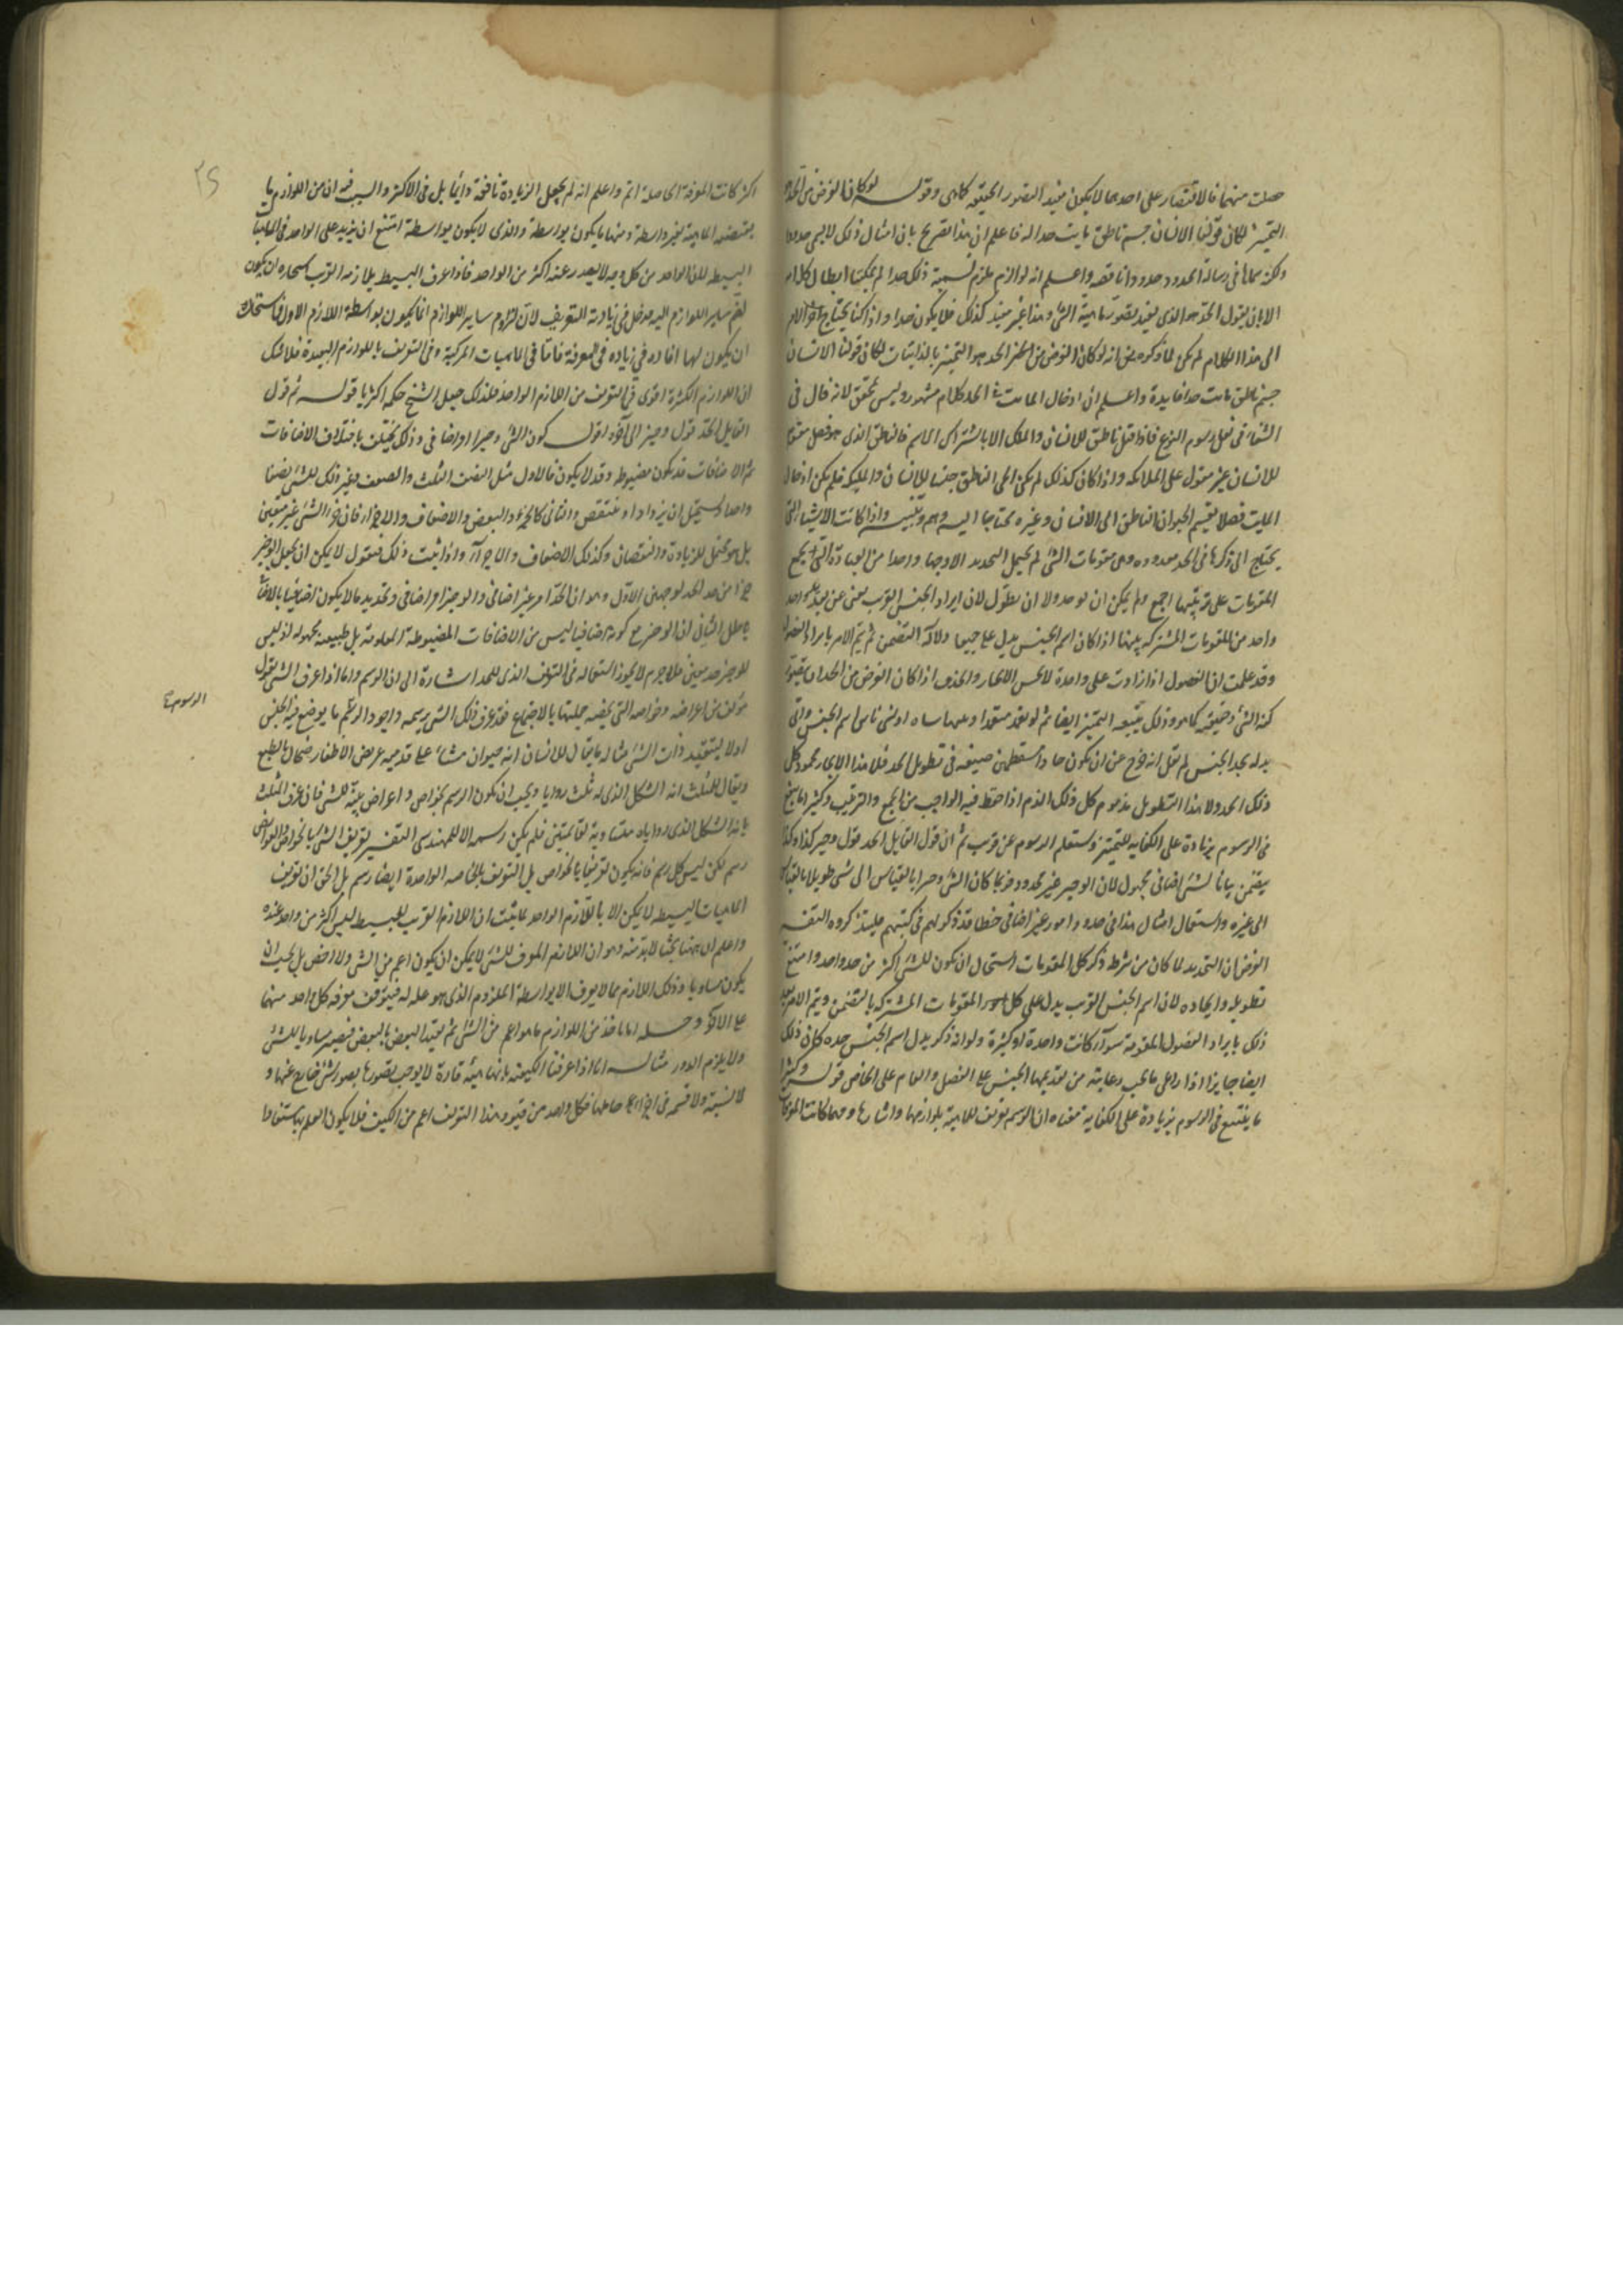 حصلت منهما فالاقتصار على احدهما لا يكون مفيدا لتصور الحقيقة كما هى وقوله لو كان الغرض من الحد
التميز لكان قولنا الانسان جسم ناطق مايت حدا له فاعلم ان هذا تصريح بان امثال ذلك لا يسمى حدودا
ولكنه سماها فى رسالة الحدود حدودا ناقصة واعلم انه لو الزم ملزم تسمية ذلك حدا لم يمكننا ابطال كلامه
الا بان يقول الحد هو الذى يفيد تصور ماهية الشئ وهذا غير مفيد كذلك فلا يكون حدا واذا كنا نحتاج
الى هذا الكلام لم يكن لما ذكره من انه لو كان الغرض من الحد هو التميز بالذاتيات لكان قولنا الانسان
جسم ناطق مايت حدا فايدة واعلم ان ادخال المايت فى الحد كلام مشهور وليس بمحقق لانه قال فى
الشفاء فى فصل رسوم النوع فاذا قيل ناطق للانسان والملك الا بالاشتراك الاسم فالناطق الذى هو فصل مقوم
للانسان غير مقول على الملائكة واذا كان كذلك لم يكن الحى الناطق جنسا للانسان والملك فلم يكن ادخال
المايت فصلا يقسم الحيوان الناطق الى الانسان وغيره محتاجا اليه وهم وتنبيه واذا كانت الاشياء التى
يحتاج الى ذكرها فى الحد معدودة وهى مقومات الشئ لم يحتمل التحديد الا وجها واحدا من العبارة التى تجمع
المقومات على ترتيبها اجمع ولم يمكن ان يوجز ولا ان يطول لان ايراد الجنس القريب يغنى عن تعديد واحد
واحد من المقومات المشتركة بينها اذا كان اسم الجنس يدل على جميعها دلالة التضمن ثم يتم الامر بايراد الفصول
وقد علمت ان الفصول اذا زادت على واحدة لا يحسن الايجاز والحذف اذا كان الغرض من الحد ان يتصور
كنه الشئ وحقيقته كما هو وذلك يتبعه التميز ايضا ثم لو تعمد متعمد او سها ساه او نسى ناس اسم الجنس واتى
بدله بحد الجنس لم نقل انه خرج عن ان يكون حادا مستعظمين صنيعه فى تطويل الحد فلا هذا الايجاز محمود كل
ذلك الحمد ولا هذا التطويل مذموم كل ذلك الذم اذا حفظ فيه الواجب من الجمع والترتيب وكثيرا ما ينتفع
فى الرسوم بزيادة على الكفاية للتميز وستعلم الرسوم عن قريب ثم ان قول القايل الحد قول وجيز كذا وكذا
يتضمن بيانا لشئ اضافى مجهول لان الوجيز غير محدود فربما كان الشئ وجيزا بالقياس الى شئ طويلا بالقياس
الى غيره واستعمال امثال هذا فى حدود امور غير اضافى خطا قد ذكر لهم فى كتبهم فليتذكروه التفسير
الغرض ان التحديد لما كان من شرطه ذكر كل المقومات استحال ان يكون للشئ اكثر من حد واحد وامتنع
تطويله وايجازه لان اسم الجنس القريب يدل على كل المقومات المشتركة بالتضمن ويتم الامر بعد
ذلك بايراد الفصول المقومة سواء كانت واحدة او كثيرة ولو انه ذكر بدل اسم الجنس حده كان ذلك
ايضا جايزا اذا راعى ما يجب رعايته من تقديمها الجنس على الفصل والعام على الخاص قوله وكثيرا
ما ينتفع فى الرسوم بزيادة على الكفاية معناه ان الرسم تعريف للماهية بلوازمها واثارها ومهما كانت المعرفات
٢٥
اكثر كانت المعرفة الحاصلة اتم واعلم انه لم يجعل الزيادة نافعة دايما بل فى الاكثر والسبب فيه ان من اللوازم ما
يقتضيه الماهية بغير واسطة ومنها ما يكون بواسطة والذى لا يكون بواسطة امتنع ان يزيد على الواحد فى الماهيات
البسيطة لان الواحد من كل وجه لا يصدر عنه اكثر من الواحد فاذا عرف البسيط بلازمه القريب استحال ان يكون
لضم ساير اللوازم اليه مدخل فى زيادة التعريف لان لزوم ساير اللوازم انما يكون بواسطة اللازم الاول فاستحال
ان يكون لها افادة فى زيادة فى المعرفة فاما فى الماهيات المركبة وفى التعريف باللوازم البعيدة فلا شك
ان اللوازم الكثيرة اقوى فى التعريف من اللازم الواحد فلذلك جعل الشيخ حكمه اكثريا قوله ثم قول
القايل الحد قول وجيز الى اخره اقول كون الشئ وجيزا امر اضافى وذلك يختلف باختلاف الاضافات
ثم الاضافات قد يكون مضبوطة وقد لا يكون فالاول مثل النصف الثلث والضعف وغير ذلك للشئ نصفا
واحدا يستحيل ان يزداد او ينتقص والثانى كالجزء والبعض والاضعاف والاجزاء فان جزء الشئ غير معين
بل هو محتمل للزيادة والنقصان وكذلك الاضعاف والاجزاء واذا ثبت ذلك فنقول لا يمكن ان يجعل الوجيز
جزءا من حد الحد لوجهين الاول وهو ان الحد امر غير اضافى والوجيز امر اضافى وتحديد ما لا يكون اضافيا بالاضافى
باطل الثانى ان الوجيز مع كونه اضافيا ليس من الاضافات المضبوطة المعلومة بل طبيعته مجهولة اذ ليس
للوجيز حد معين فلا جرم لا يجوز استعماله فى التعريف الذى للحد اشارة الى ان الرسم واما اذا عرف الشئ بقول
الرسوم
مؤلف من اعراضه وخواصه التى تخصه جملتها بالاجتماع فقد عرف ذلك الشئ برسمه واجود الرسوم ما يوضع فيه الجنس
اولا ليتقيد ذات الشئ مثاله ما يقال للانسان انه حيوان مشاء على قدميه عريض الاظفار ضحاك بالطبع
ويقال للمثلث انه الشكل الذى له ثلث زوايا ويجب ان يكون الرسم بخواص واعراض بينة للشئ فان عرف المثلث
بانه الشكل الذى زواياه متساوية لقايمتين فلم يكن رسمه الا للمهندس التفسير تعريف الشئ بالخواص والعوارض
رسم لكن ليس كل رسم فانه يكون تعريفا بالخواص بل التعريف بالخاصة الواحدة ايضا رسم بل الحق ان تعريف
الماهيات البسيطة لا يمكن الا باللازم الواحد لما ثبت ان اللازم القريب للبسيط ليس اكثر من واحد عنده
واعلم ان ههنا بحثا لا بد منه وهو ان اللازم المعرف للشئ لا يمكن ان يكون اعم من الشئ ولا اخص بل يجب ان
يكون مساويا وذلك اللازم مما لا يعرف الا بواسطة الملزوم الذى هو علة له فيتوقف معرفة كل واحد منهما
على الاخر وحله انا ناخذ من اللوازم ما هو اعم من الشئ ثم نقيد البعض بالبعض فيصير مساويا للشئ
ولا يلزم الدور مثاله انا اذا عرفنا الكيفية بانها هيئة قارة لا يوجب تصورها تصور شئ خارج عنها و
لا نسبة ولا قسمة فى اجزاء حاملها فكل واحد من قيود هذا التعريف اعم من الكيف فلا يكون العلم به مستفادا